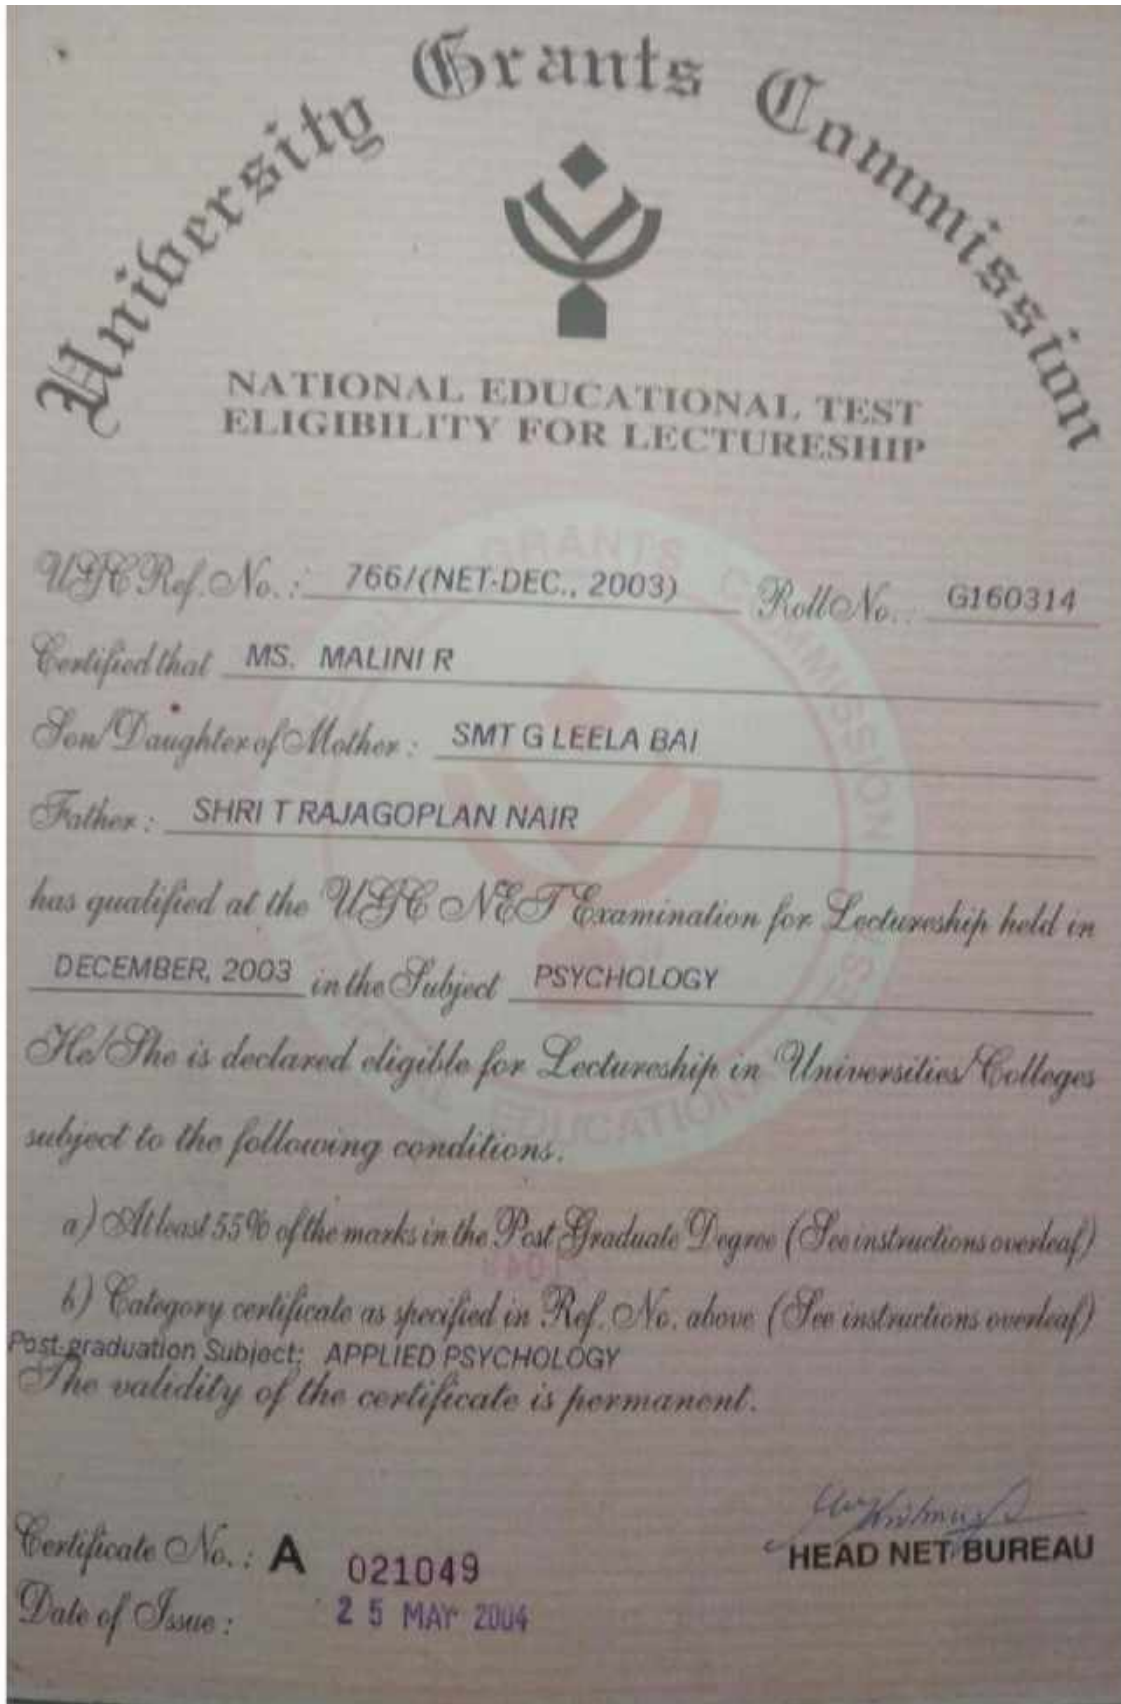 University Grants Commission
NATIONAL EDUCATIONAL TEST
ELIGIBILITY FOR LECTURESHIP
UGC Ref. No. : 766/(NET-DEC., 2003) Roll No. : G160314
Certified that MS. MALINI R
Son/Daughter of Mother : SMT G LEELA BAI
Father : SHRI T RAJAGOPLAN NAIR
has qualified at the UGC NET Examination for Lectureship held in
DECEMBER, 2003 in the Subject PSYCHOLOGY
He/She is declared eligible for Lectureship in Universities/Colleges
subject to the following conditions.
a) At least 55% of the marks in the Post Graduate Degree (See instructions overleaf)
b) Category certificate as specified in Ref. No. above (See instructions overleaf)
Post-graduation Subject: APPLIED PSYCHOLOGY
The validity of the certificate is permanent.
HEAD NET BUREAU
Certificate No. : A 021049
Date of Issue : 25 MAY 2004